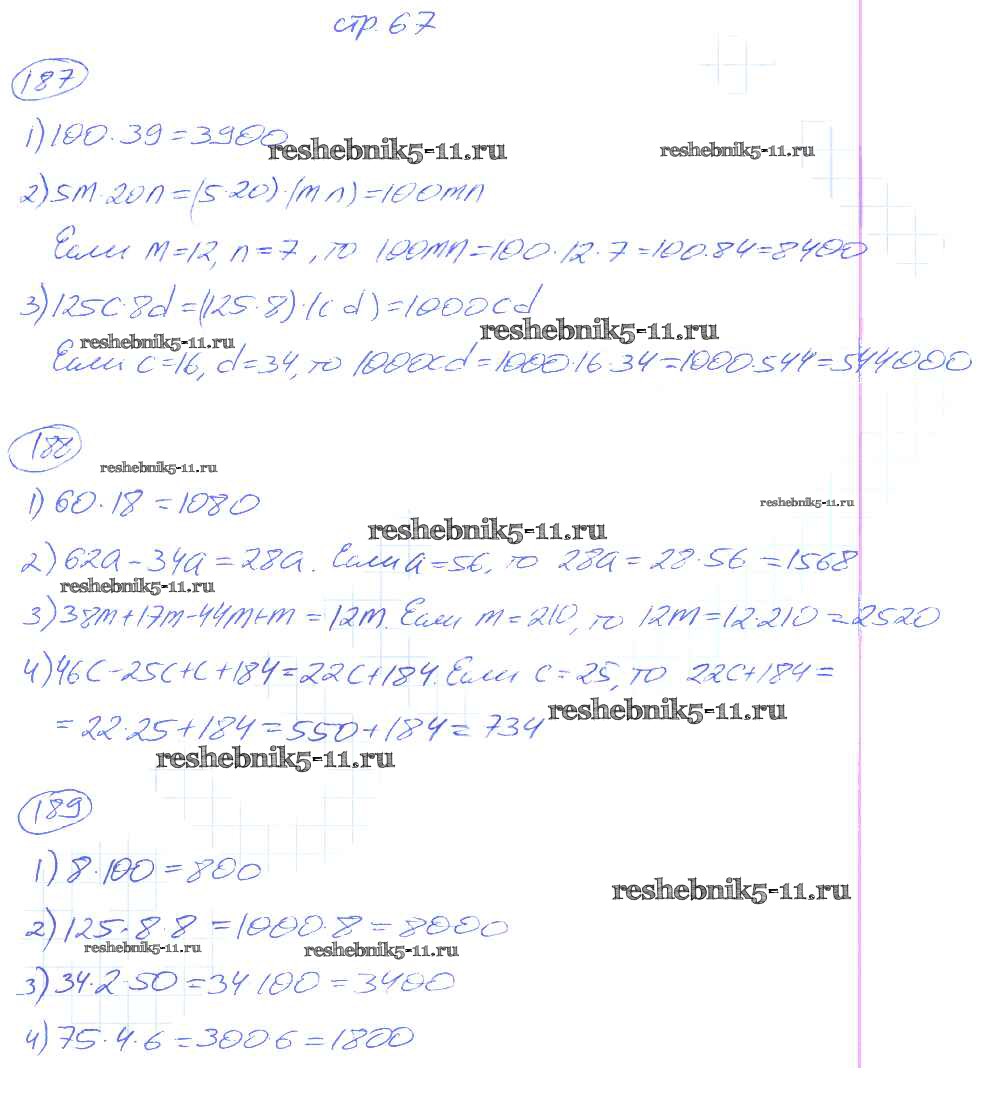 стр. 67
187
1) 100·39=3900
reshebnik5-11.ru reshebnik5-11.ru
2) 5m·20n=(5·20)·(mn)=100mn
Если m=12, n=7, то 100mn=100·12·7=100·84=8400
3) 125c·8d=(125·8)·(cd)=1000cd
reshebnik5-11.ru reshebnik5-11.ru
Если c=16, d=34, то 1000cd=1000·16·34=1000·544=544000
188
reshebnik5-11.ru
1) 60·18=1080
reshebnik5-11.ru
reshebnik5-11.ru
2) 62a-34a=28a. Если a=56, то 28a=28·56=1568
reshebnik5-11.ru
3) 38m+17m-44m+m=12m. Если m=210, то 12m=12·210=2520
4) 46c-25c+c+184=22c+184. Если c=25, то 22c+184=
=22·25+184=550+184=734
reshebnik5-11.ru
reshebnik5-11.ru
189
1) 8·100=800
reshebnik5-11.ru
2) 125·8·8=1000·8=8000
reshebnik5-11.ru reshebnik5-11.ru
3) 34·2·50=34 100=3400
4) 75·4·6=300·6=1800